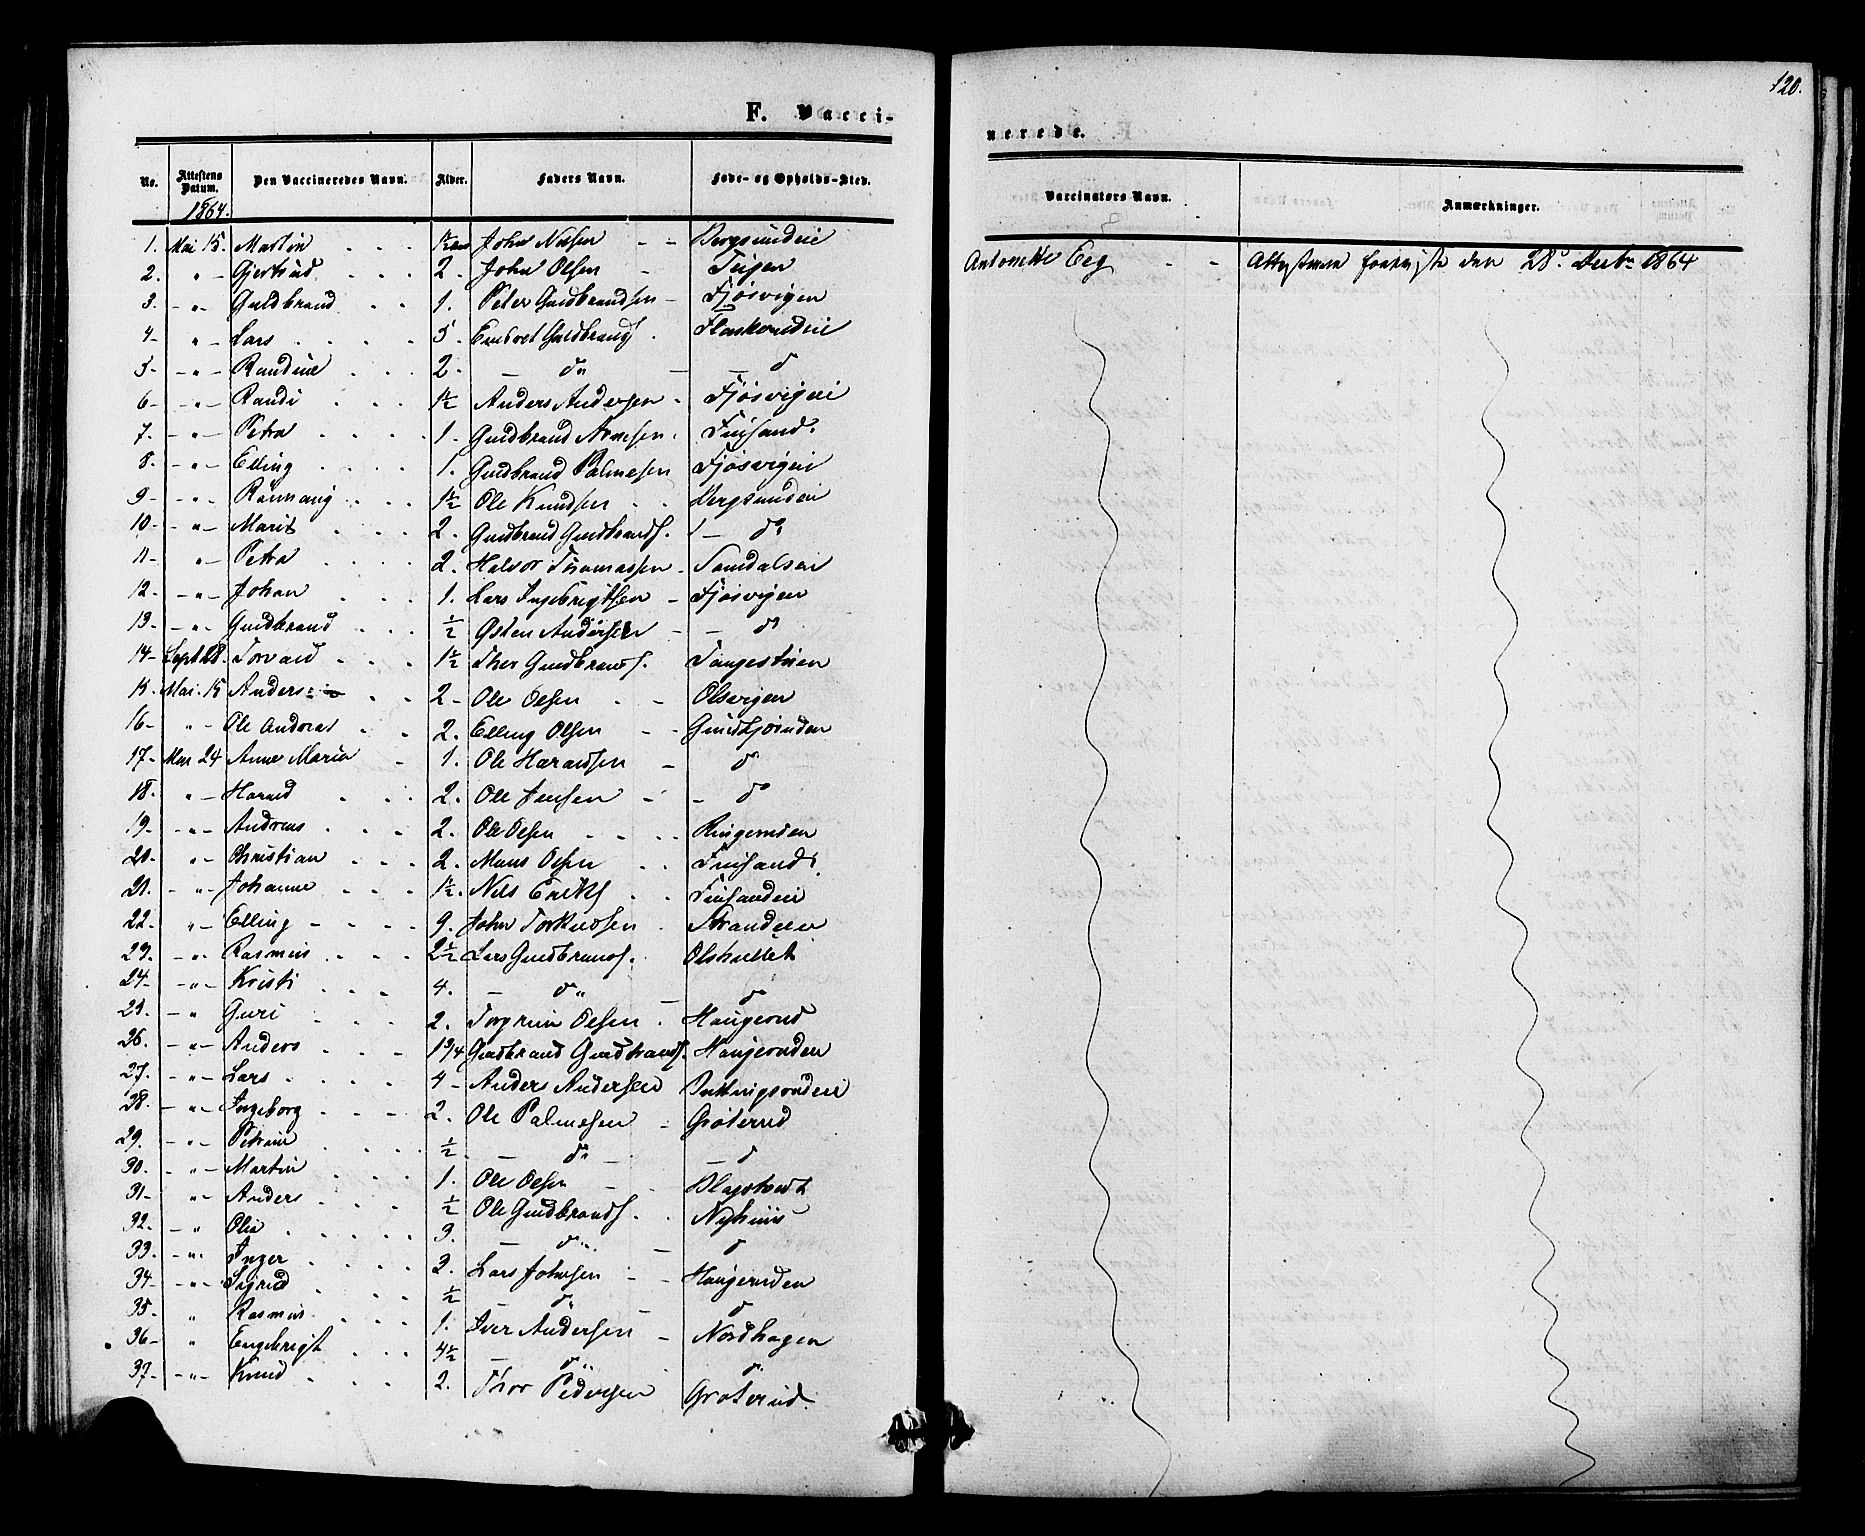 120.
F. Vacci-
nerede.
No. Attestens Datum. Den Vaccineredes Navn. Alder. Faders Navn. Føde- og Opholds-Sted. Vaccinators Navn. Anmærkninger.
1864.
1. Mai 15. Martin 1½ John Nilsen Bergsundeie Antonette Eeg Attesterne foreviste den 28d Decbr 1864
2. " Gjertrud 2. John Olsen Teigen
3. " Guldbrand 1. Peter Guldbrandsen Fjøsvigen
4 " Lars 5. Embret Guldbrands
5 " Randine 2. do do
6 " Randi 1½ Anders Andersen Fjøsvigeie
7. " Petra 1. Guldbrand Arnesen
8. " Elling 1. Guldbrand Palmesen Fjøsvigeie
9 " Rønnaug 1½ Ole Knudsen Bergsundeie
10. " Marit 2. Guldbrand Guldbrands. do
11 " Petra 2. Halvor Thomassen
12. " Johan 1. Lars Ingebrigtsen Fjøsvigen
13. " Guldbrand ½ Østen Andersen do
14 Sept 28. Torvald 1½ Thor Guldbrands.
15. Mai. 15 Anders 2 Ole Olsen Olsvigen
16 " Ole Andreas 2. Elling Olsen
17 Mai 24 Anne Maria 1. Ole Haraldsen do
18. " Harald 2. Ole Jensen do
19. " Andreas 2. Ole Olsen Ringeruden
20. " Christian 2. Mons Olsen
21. " Johanne 1½. Nils Eriks
22. " Elling 9. John Torkildsen Stranden
23. " Rasmus 2½ Lars Guldbrands.
24. " Kristi 4. do do
25. " Guri 2. Torgrim Olsen Haugerud
26. " Anders 1 3/4 Guldbrand Guldbrands. Haugeruden
27. " Lars 4 Anders Andersen
28. " Ingeborg 2. Ole Palmesen Groterud
29. " Petrine ½. do do
30. " Martin 1. Ole Olsen
31 " Anders ½ Ole Guldbrands. Nyhuus
32. " Olia 3. do do
33. " Inger 3. Lars Johnsen Haugeruden
34 " Sigrid ½ do do
35. " Rasmus 1. Iver Andersen Nordhagen
36 " Engebrigt 4½ do do
37. " Knud 2. Thor Pedersen Groterud.